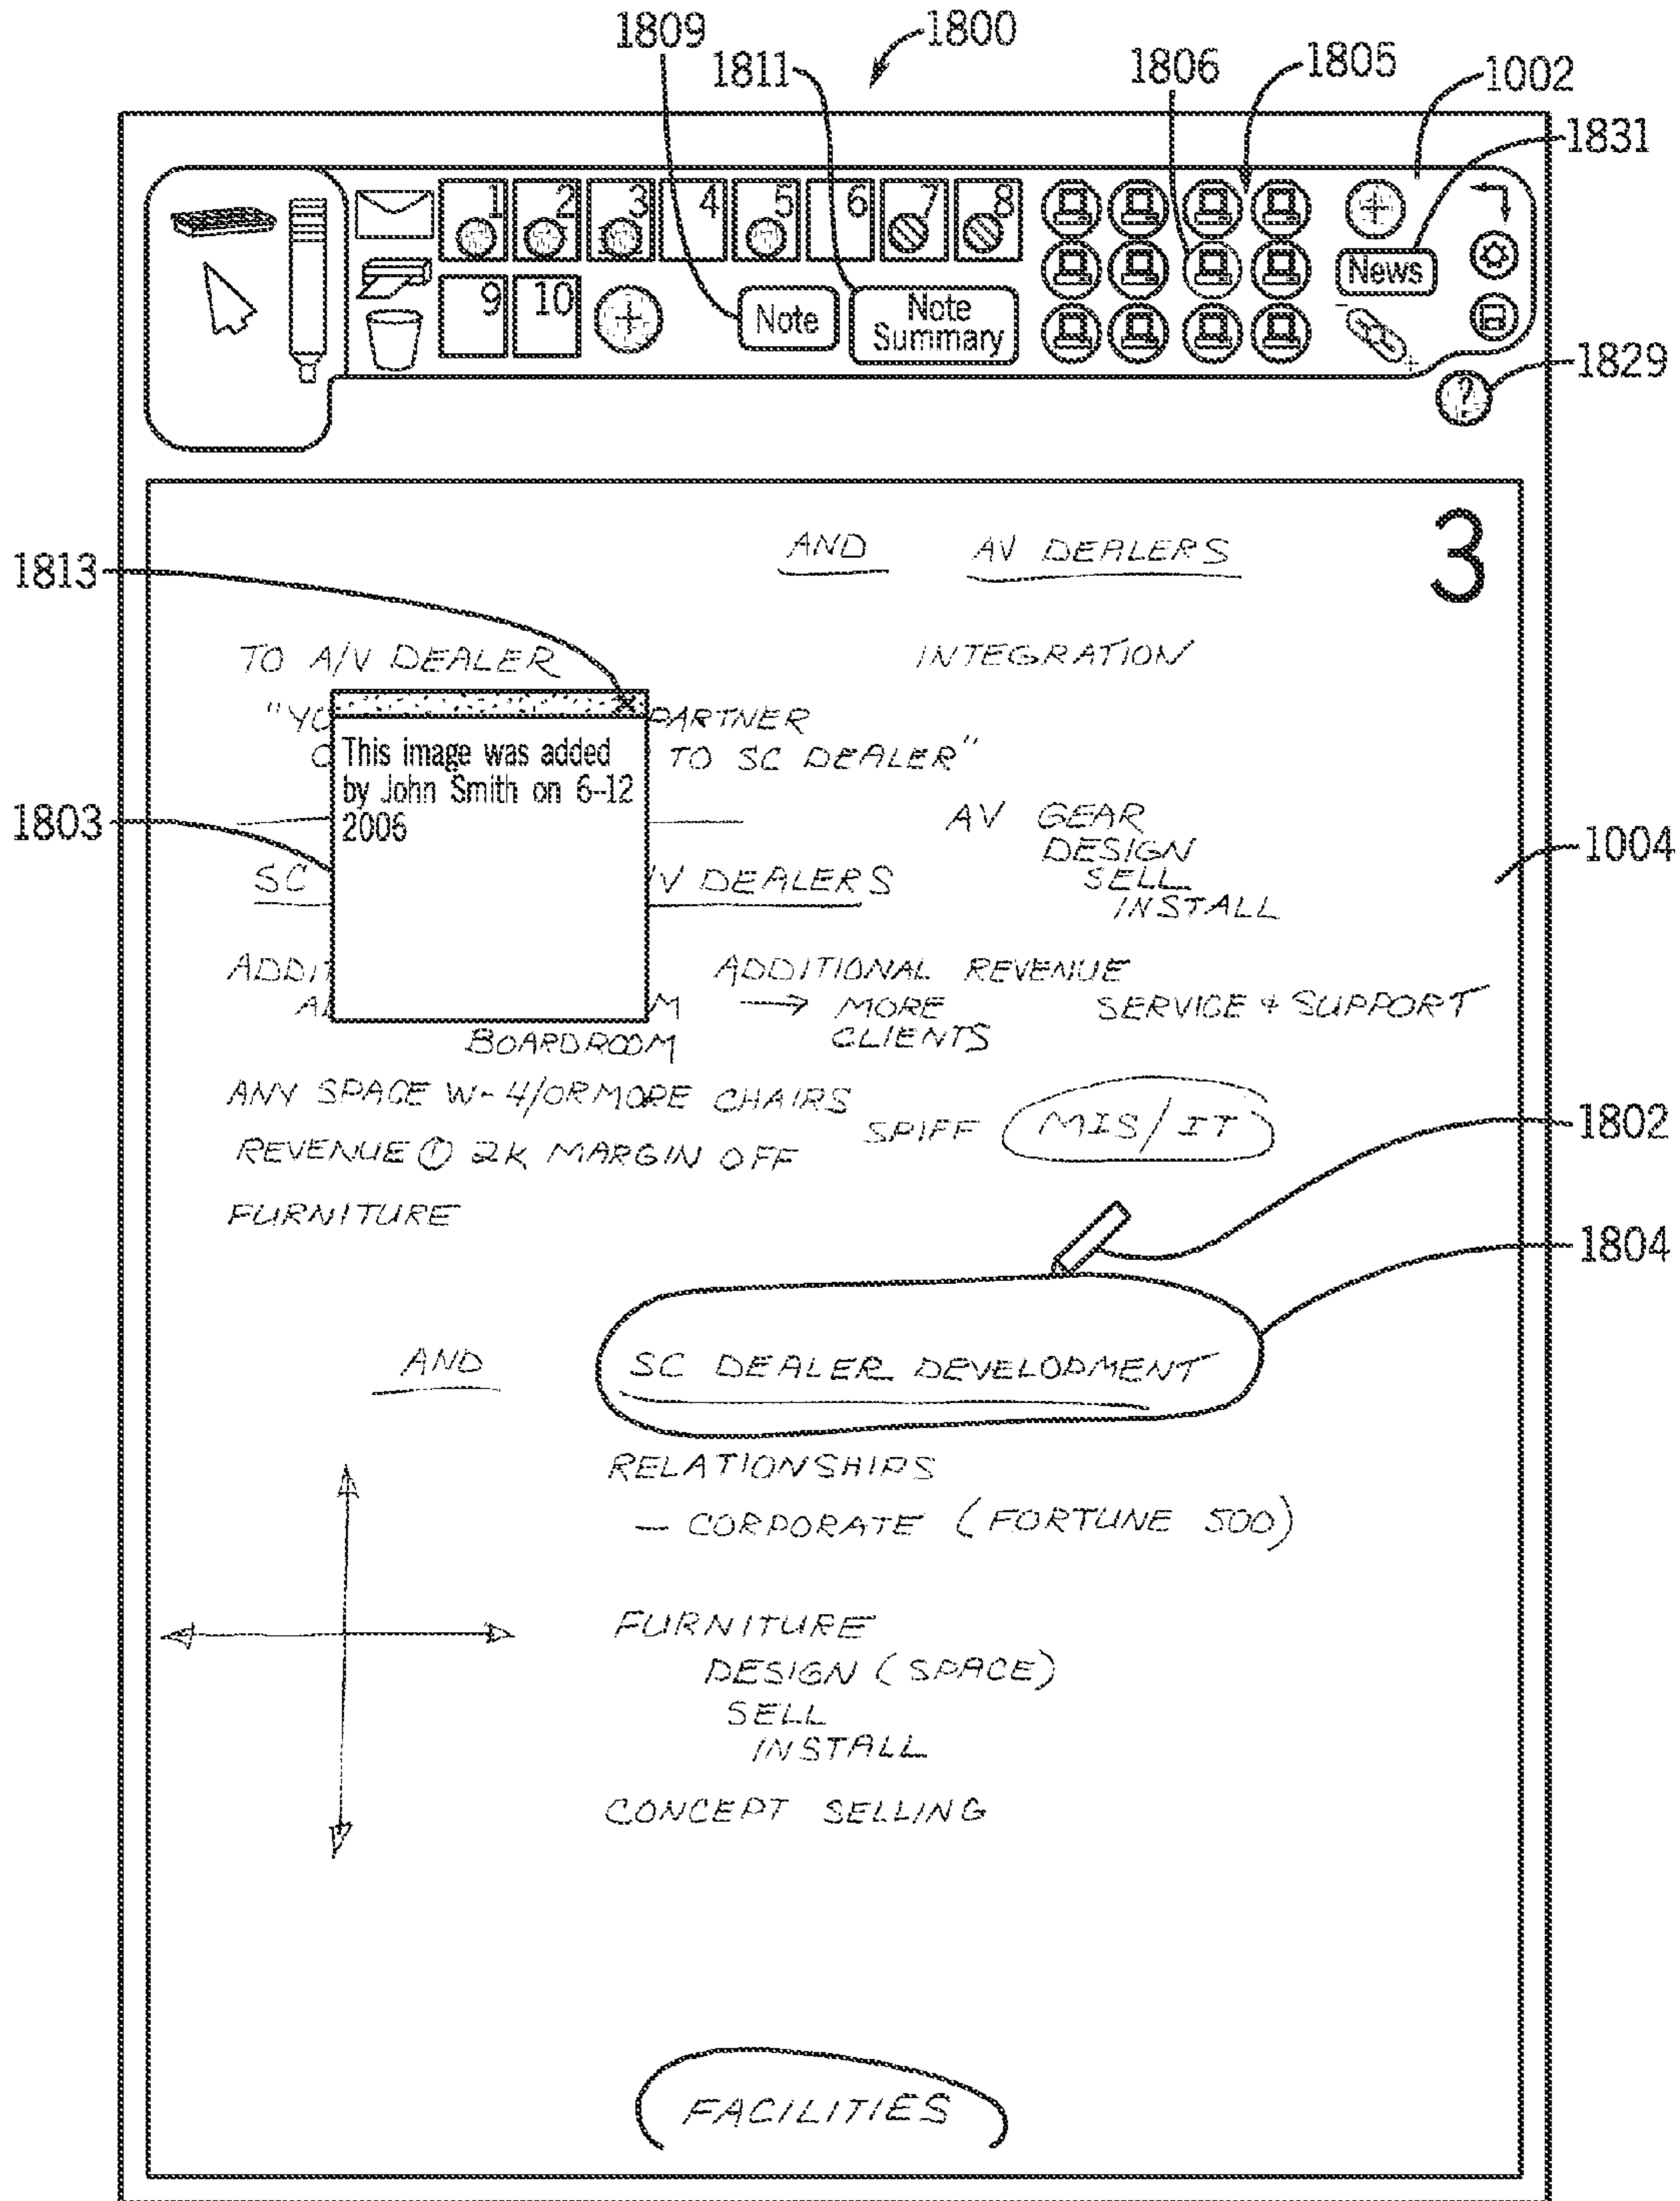 1809
1800
1811
1806
1805
1002
1831
1 2 3 4 5 6 7 8
9 10
Note
Note
Summary
News
?
1829
3
AND AV DEALERS
1813
TO A/V DEALER INTEGRATION
"YO PARTNER
TO SC DEALER"
This image was added
by John Smith on 6-12
2006
1803
AV GEAR
DESIGN
SELL
INSTALL
1004
SC V DEALERS
ADDIT ADDITIONAL REVENUE
M → MORE SERVICE + SUPPORT
BOARDROOM CLIENTS
ANY SPACE W- 4/OR MORE CHAIRS
SPIFF MIS/IT
1802
REVENUE ① 2K MARGIN OFF
FURNITURE
1804
AND SC DEALER DEVELOPMENT
RELATIONSHIPS
— CORPORATE (FORTUNE 500)
FURNITURE
DESIGN (SPACE)
SELL
INSTALL
CONCEPT SELLING
FACILITIES